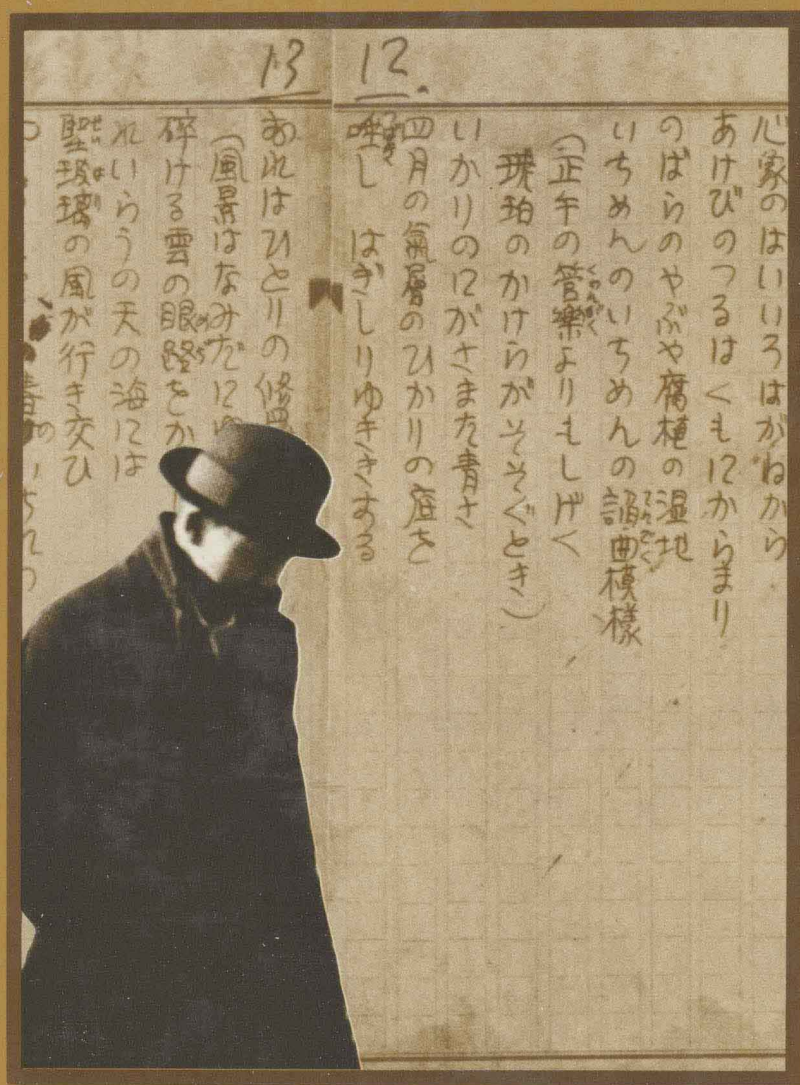 12
心象のはいいろはがねから
あけびのつるはくもにからまり
のばらのやぶや腐植の湿地
いちめんのいちめんの諂曲模様
(正午の管樂よりもしげく
琥珀のかけらがそそぐとき)
いかりのにがさまた青さ
四月の氣層のひかりの底を
唾し はぎしりゆききする
13
おれはひとりの修羅
(風景はなみだにゆ
砕ける雲の眼路をか
れいらうの天の海には
聖玻璃の風が行き交ひ
春のいちれつ